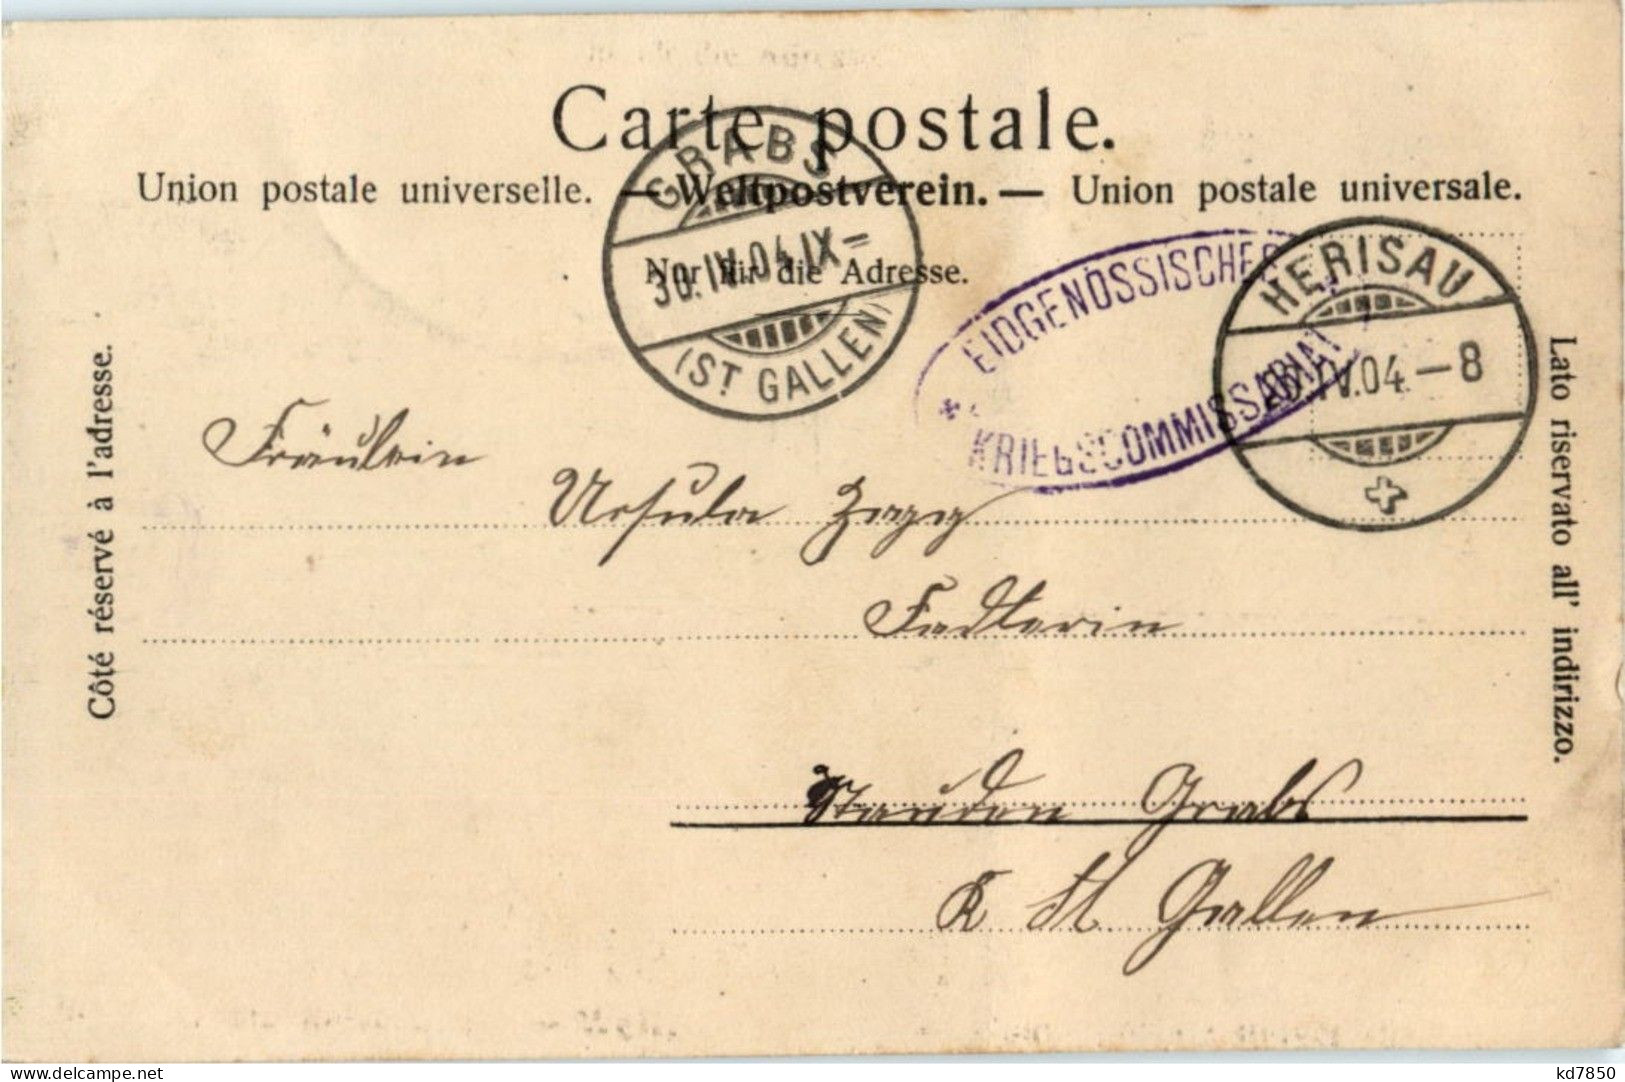 Carte postale.
Union postale universelle. — Weltpostverein. — Union postale universale.
Nur für die Adresse.
GRABS
30.IV.04.IX—
(ST GALLEN)
EIDGENÖSSISCHES
KRIEGSCOMMISSARIAT
HERISAU
29.IV.04.—8
Côté réservé à l'adresse.
Lato riservato all' indirizzo.
Fräulein
Ursula Zogg
Fädlerin
Stauden Grabs
K St Gallen
kd7850